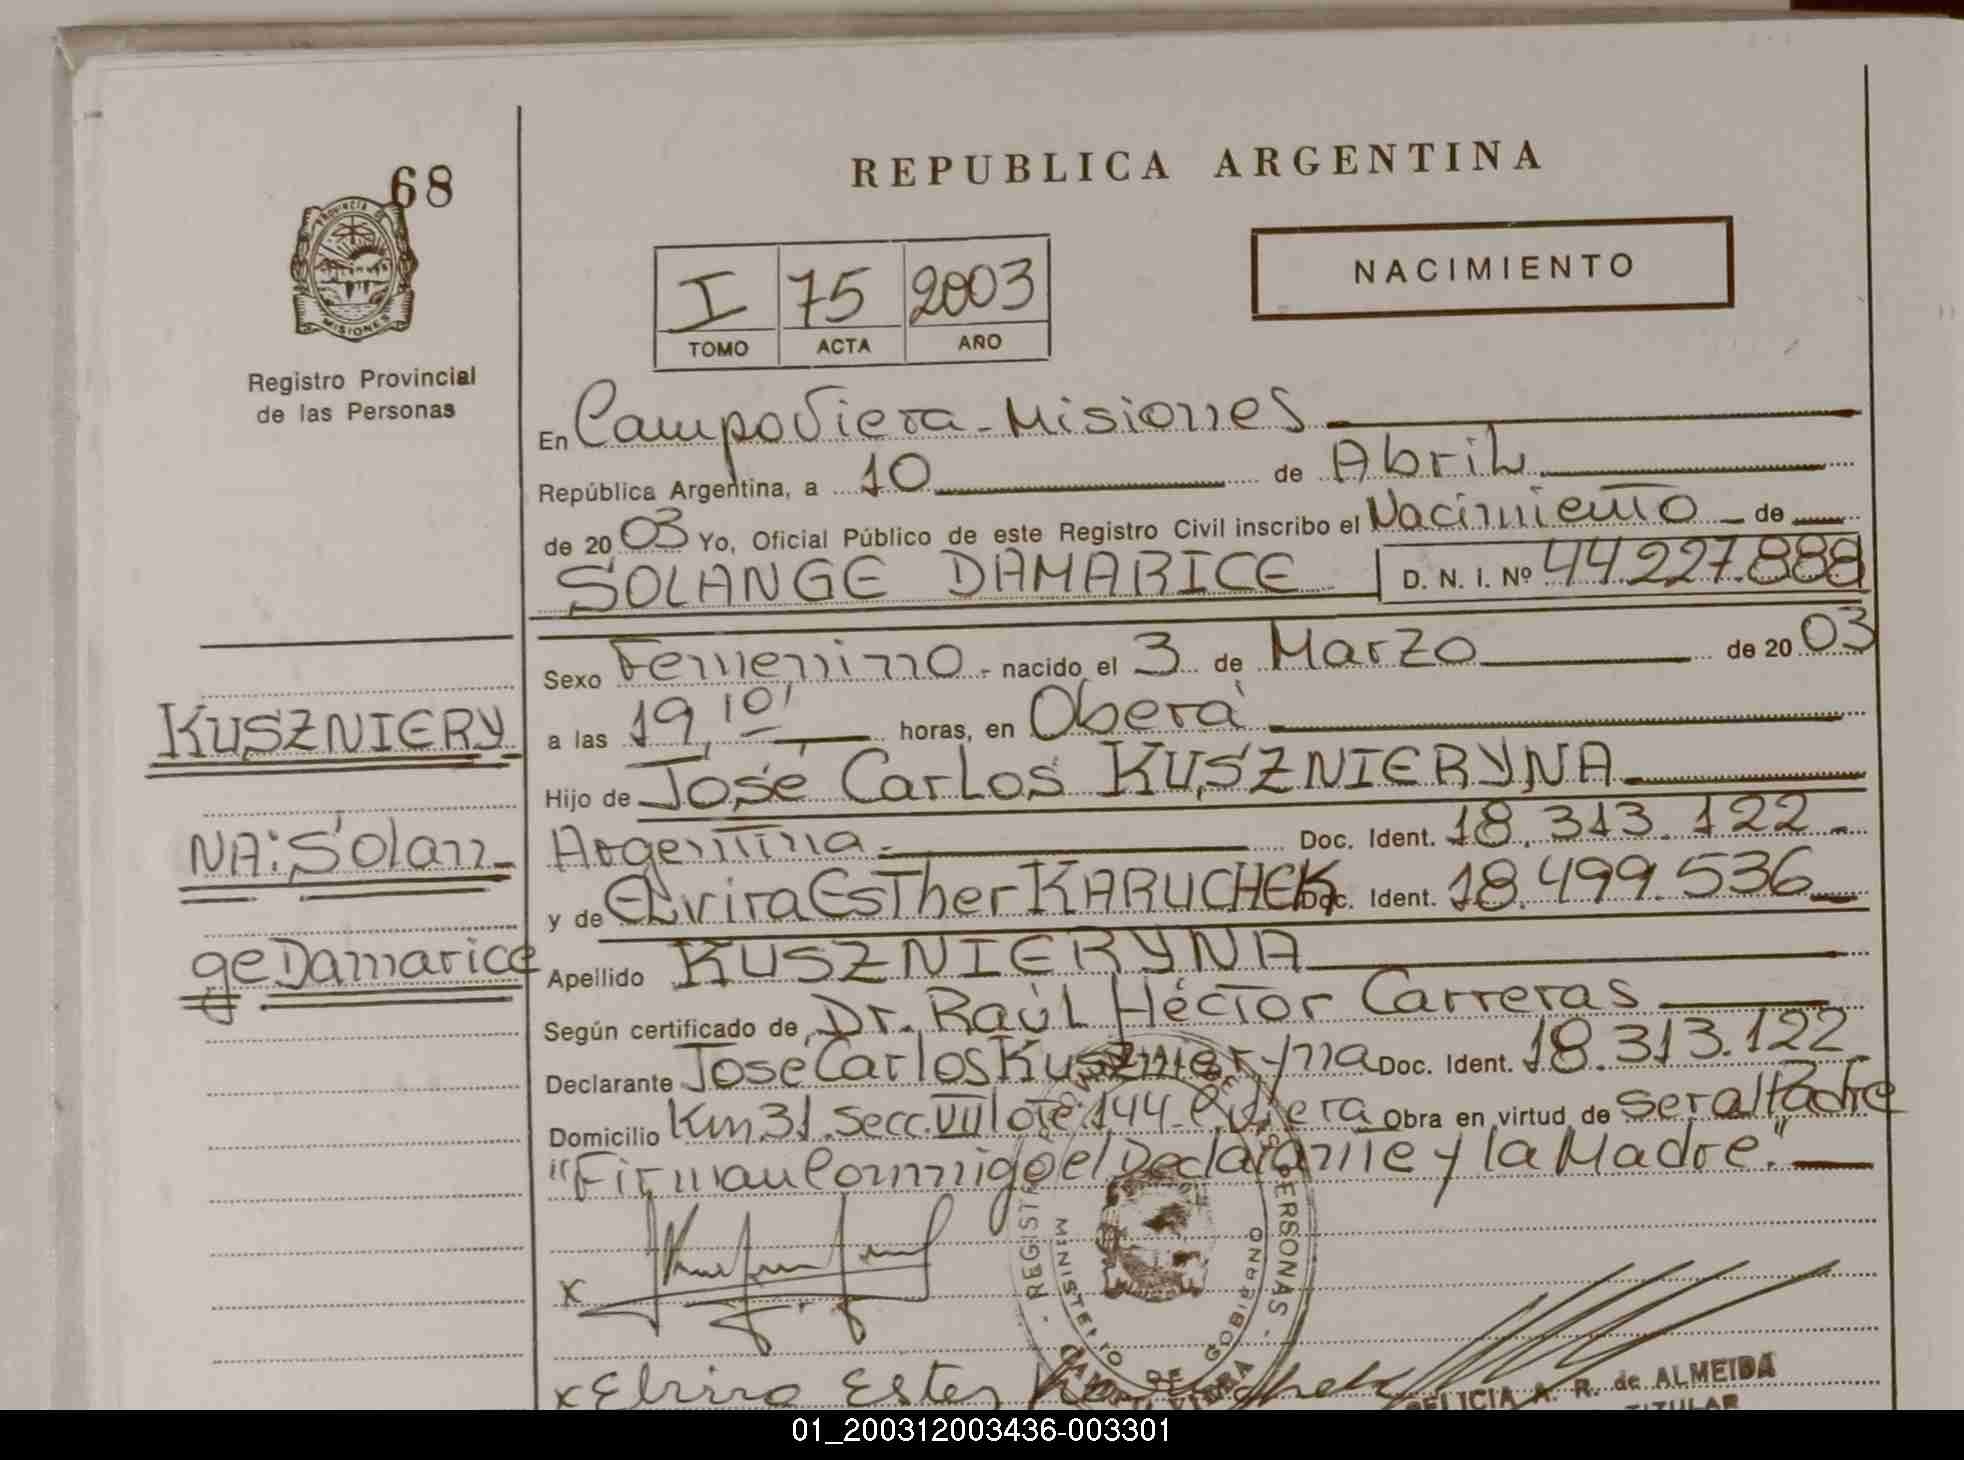 68
PROVINCIA DE
MISIONES
Registro Provincial
de las Personas
REPUBLICA ARGENTINA
I 75 2003
TOMO ACTA AÑO
NACIMIENTO
En Campo Viera - Misiones
República Argentina, a 10 de Abril
de 20 03 Yo, Oficial Público de este Registro Civil inscribo el Nacimiento de
SOLANGE DAMARICE D. N. I. Nº 44.227.888
Sexo Femenino - nacido el 3 de Marzo de 20 03
a las 19,10' horas, en Oberá
Hijo de José Carlos KUSZNIERYNA
Argentina - Doc. Ident. 18.313.122 -
y de ELvira EsTher KARUCHEK Doc. Ident. 18.499.536
Apellido KUSZNIERYNA
Según certificado de Dr. Raúl Héctor Carreras
Declarante José Carlos Kusznieryna Doc. Ident. 18.313.122
Domicilio Km 31. Secc. VII lote 144 - C. Viera Obra en virtud de ser al Padre
"Firman Conmigo el Declarante y la Madre."
KUSZNIERY
NA: Solan-
ge Damarice
x
x Elvira Ester
REGISTRO PERSONAS
MINISTERIO DE GOBIERNO
CAMPO VIERA
FELICIA A. R. de ALMEIDA
TITULAR
01_200312003436-003301